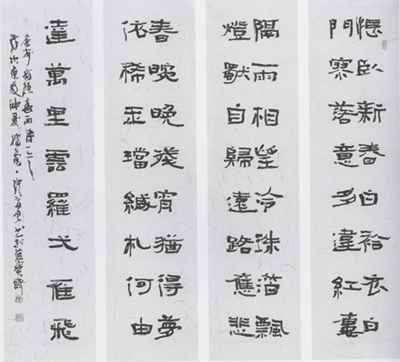 悵臥新春白袷衣白
門寥落意多違紅樓
隔雨相望冷珠箔飄
燈獨自歸遠路應悲
春晼晚殘宵猶得夢
依稀玉璫緘札何由
達萬里雲羅弌雁飛